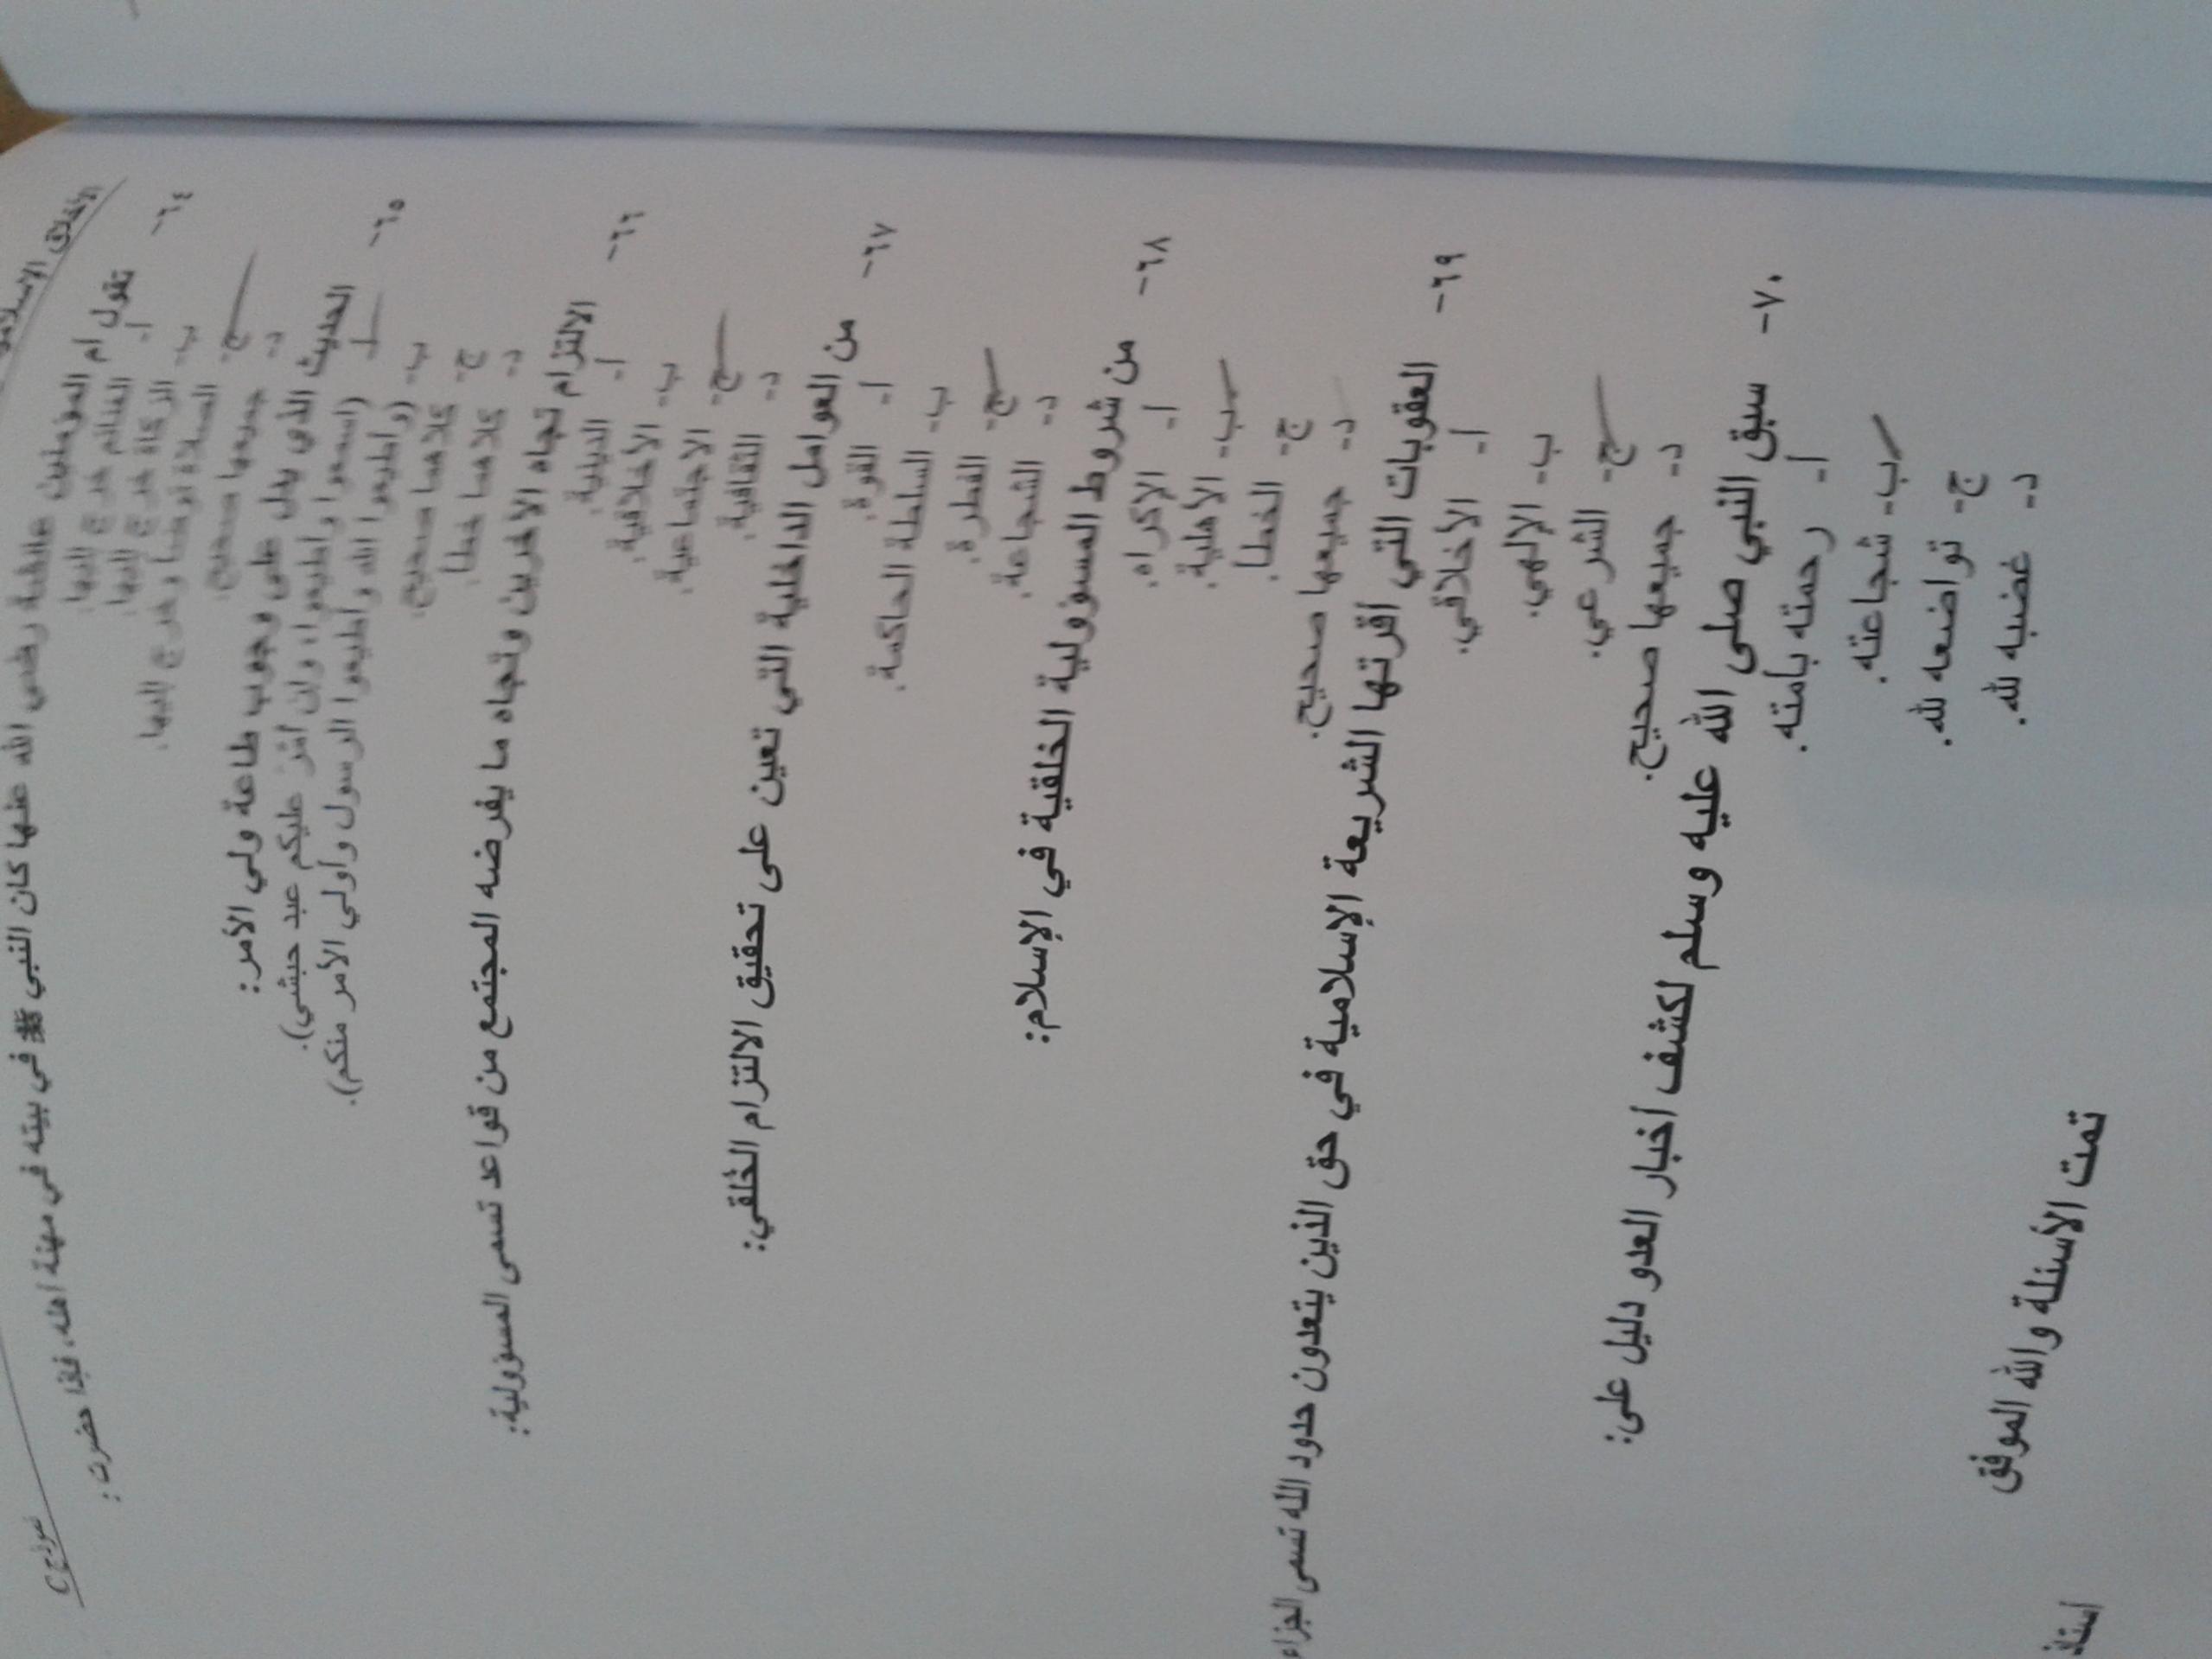 الأخلاق الإسلامية
نموذج C
٦٤- تقول أم المؤمنين عائشة رضي الله عنها كان النبي ﷺ في بيته في مهنة أهله، فإذا حضرت:
أ- الغنائم خرج إليها.
ب- الزكاة خرج إليها.
ج- الصلاة توضأ وخرج إليها.
د- جميعها صحيح.
٦٥- الحديث الذي يدل على وجوب طاعة ولي الأمر:
أ- (اسمعوا وأطيعوا، وإن أمر عليكم عبد حبشي).
ب- (وأطيعوا الله وأطيعوا الرسول وأولي الأمر منكم).
ج- كلاهما صحيح.
د- كلاهما خطأ.
٦٦- الالتزام تجاه الآخرين وتجاه ما يفرضه المجتمع من قواعد تسمى المسؤولية:
أ- الدينية.
ب- الأخلاقية.
ج- الاجتماعية.
د- الثقافية.
٦٧- من العوامل الداخلية التي تعين على تحقيق الالتزام الخُلقي:
أ- القوة.
ب- السلطة الحاكمة.
ج- الفطرة.
د- الشجاعة.
٦٨- من شروط المسؤولية الخلقية في الإسلام:
أ- الإكراه.
ب- الأهلية.
ج- الخطأ.
د- جميعها صحيح.
٦٩- العقوبات التي أقرتها الشريعة الإسلامية في حق الذين يتعدون حدود الله تسمى الجزاء
أ- الأخلاقي.
ب- الإلهي.
ج- الشرعي.
د- جميعها صحيح.
٧٠- سبق النبي صلى الله عليه وسلم لكشف أخبار العدو دليل على:
أ- رحمته بأمته.
ب- شجاعته.
ج- تواضعه لله.
د- غضبه لله.
تمت الأسئلة والله الموفق